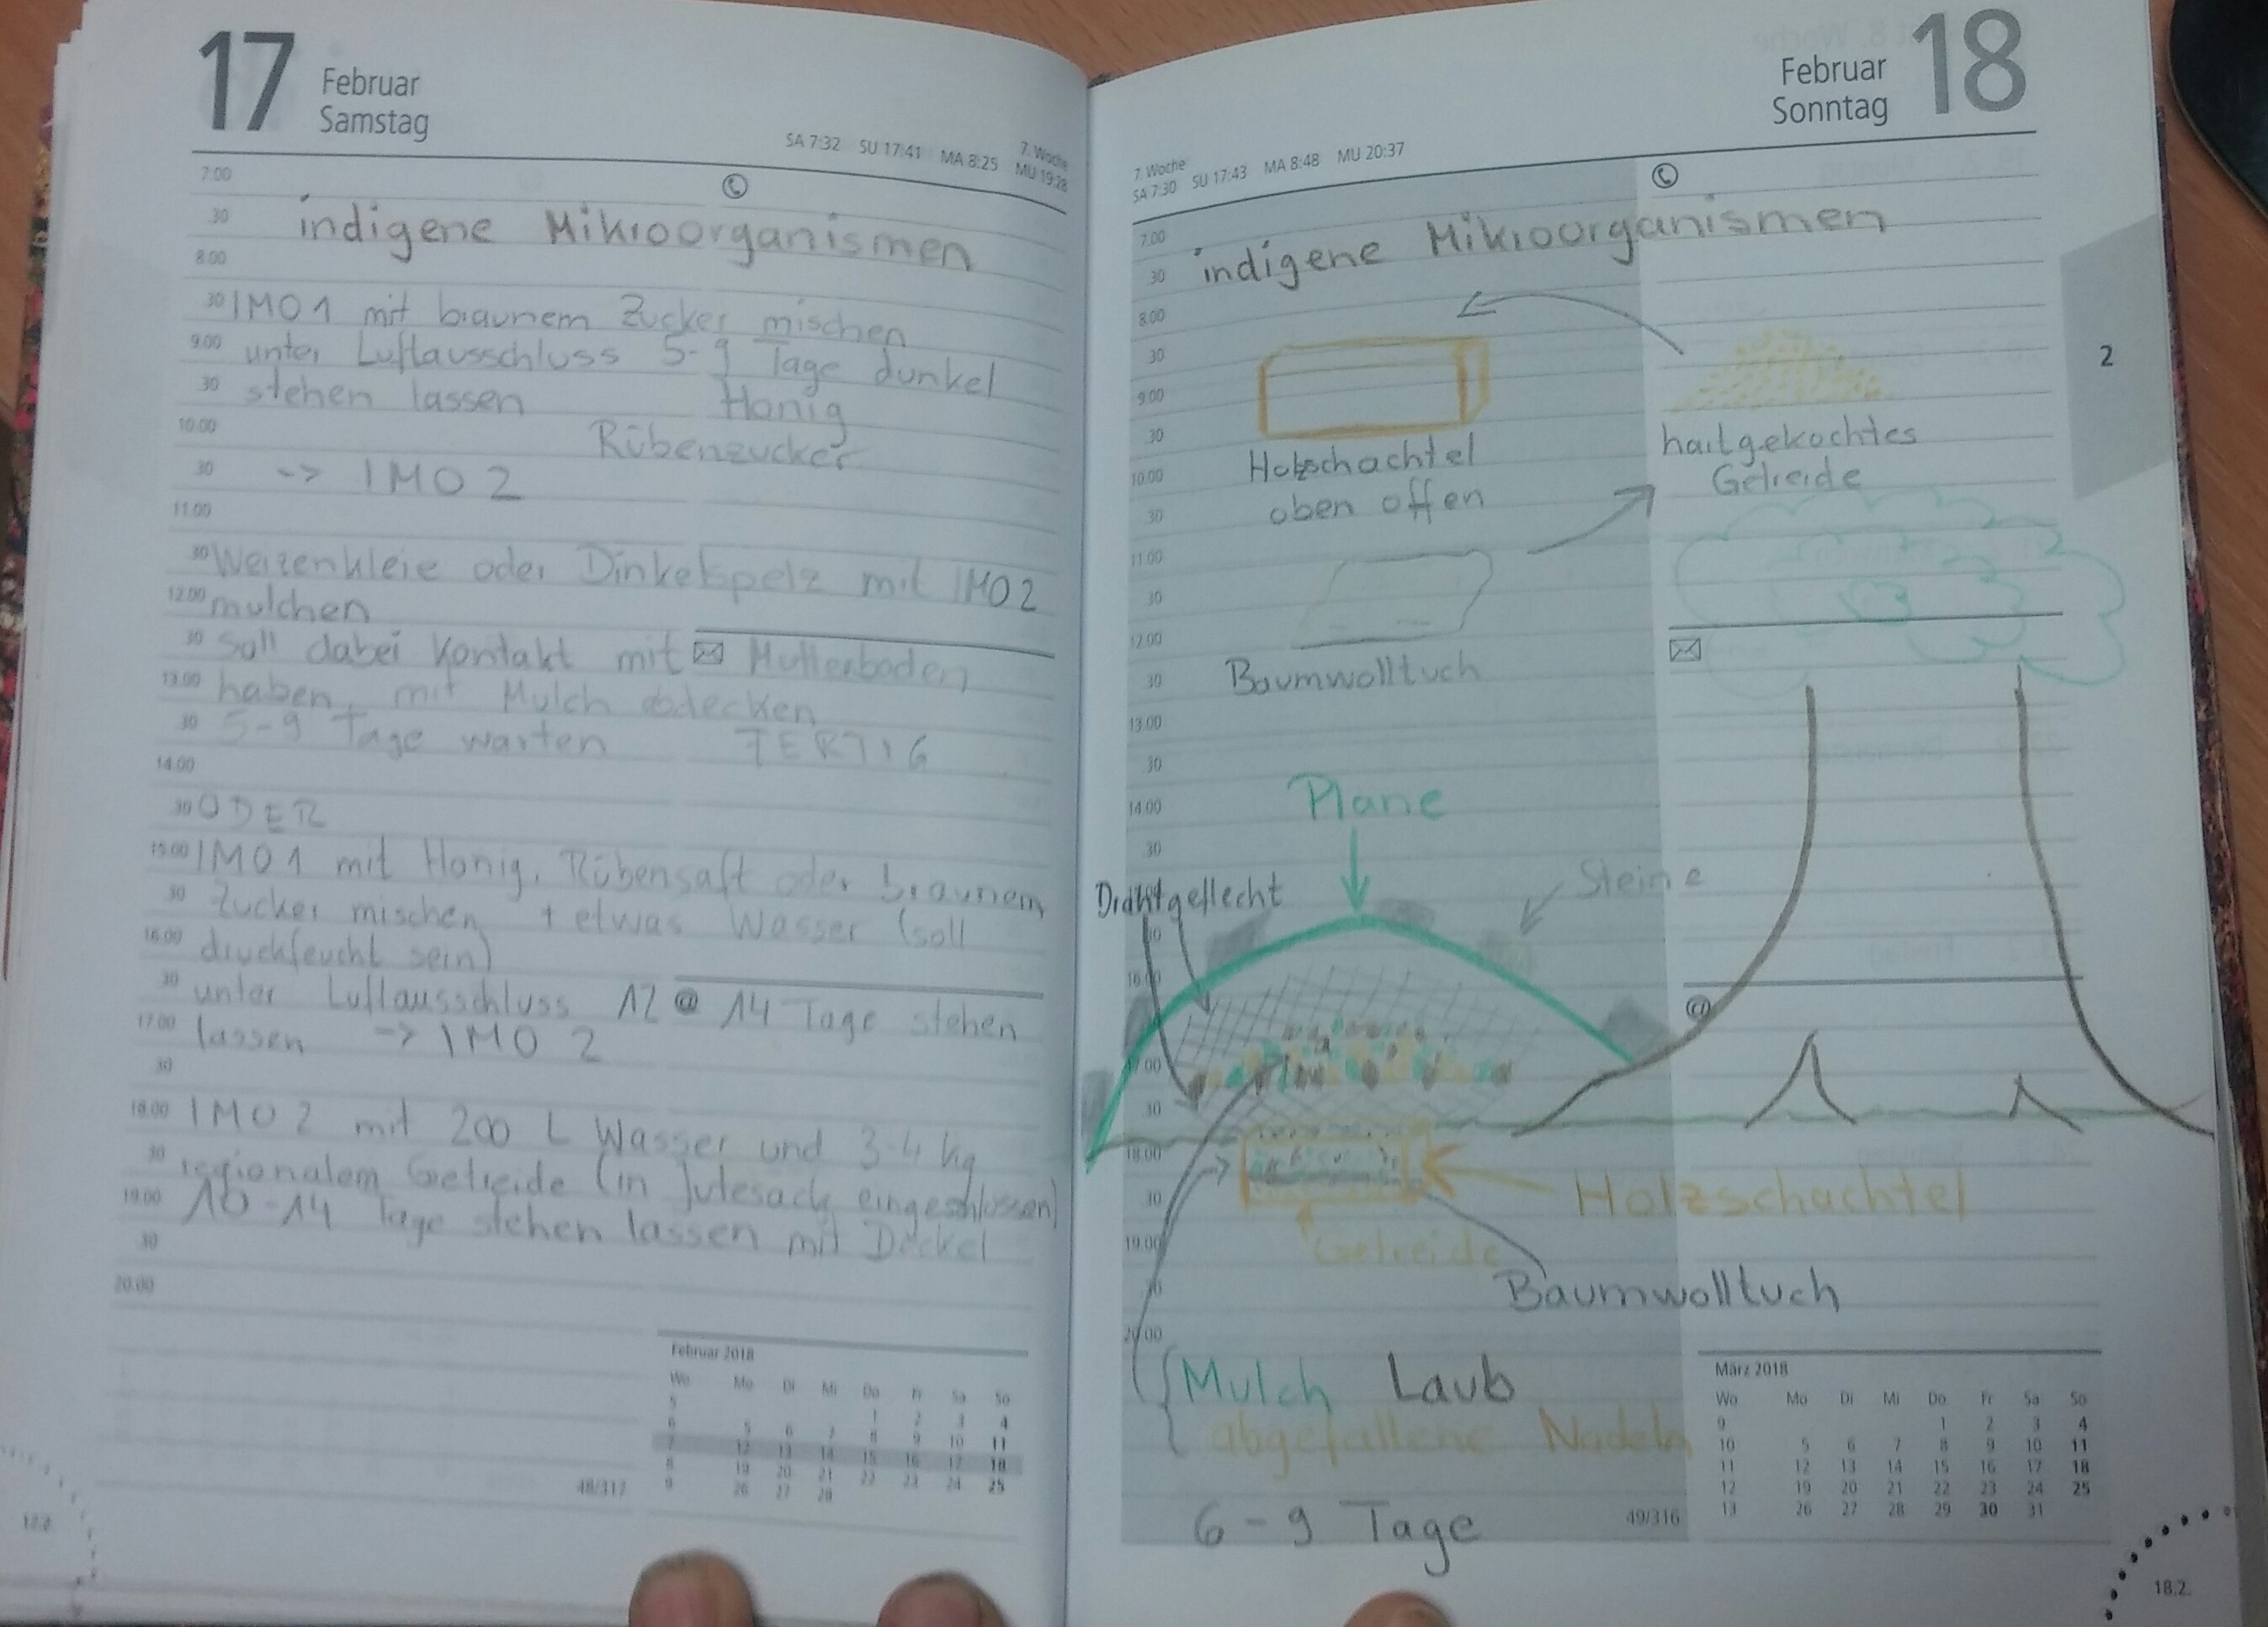 17
Februar
Samstag
7. Woche
SA 7:32 SU 17:41 MA 8:25 MU 19:28
7.00
30 indigene Mikroorganismen
8.00
30 IMO1 mit braunem Zucker mischen
9.00 unter Luftausschluss 5-9 Tage dunkel
30 stehen lassen Honig
10.00 Rübenzucker
30 -> IMO 2
11.00
30 Weizenkleie oder Dinkelspelz mit IMO2
12.00 mulchen
30 soll dabei Kontakt mit Mutterboden
13.00 haben, mit Mulch abdecken
30 5-9 Tage warten FERTIG
14.00
30 ODER
15.00 IMO1 mit Honig, Rübensaft oder braunem
30 Zucker mischen + etwas Wasser (soll
16.00 druckfeucht sein)
30 unter Luftausschluss 12 @ 14 Tage stehen
17.00 lassen -> IMO 2
30
18.00 IMO2 mit 200 L Wasser und 3-4 kg
30 regionalem Getreide (in Jutesack eingeschlossen)
19.00 10-14 Tage stehen lassen mit Deckel
30
20.00
Februar 2018
Wo Mo Di Mi Do Fr Sa So
5 1 2 3 4
6 5 6 7 8 9 10 11
7 12 13 14 15 16 17 18
8 19 20 21 22 23 24 25
9 26 27 28
48/317
18
Februar
Sonntag
7. Woche
SA 7:30 SU 17:43 MA 8:48 MU 20:37
7.00
30 indigene Mikroorganismen
8.00
30
2
9.00
30
hartgekochtes
Getreide
10.00 Holzschachtel
30 oben offen
11.00
30
12.00
30 Baumwolltuch
13.00
30
14.00 Plane
30
Steine
Drahtgeflecht
30
16.00
@
17.00
30
18.00
30 Holzschachtel
19.00 Getreide
30 Baumwolltuch
20.00
Mulch Laub
abgefallene Nadeln
6-9 Tage
49/316
März 2018
Wo Mo Di Mi Do Fr Sa So
9 1 2 3 4
10 5 6 7 8 9 10 11
11 12 13 14 15 16 17 18
12 19 20 21 22 23 24 25
13 26 27 28 29 30 31
18.2.